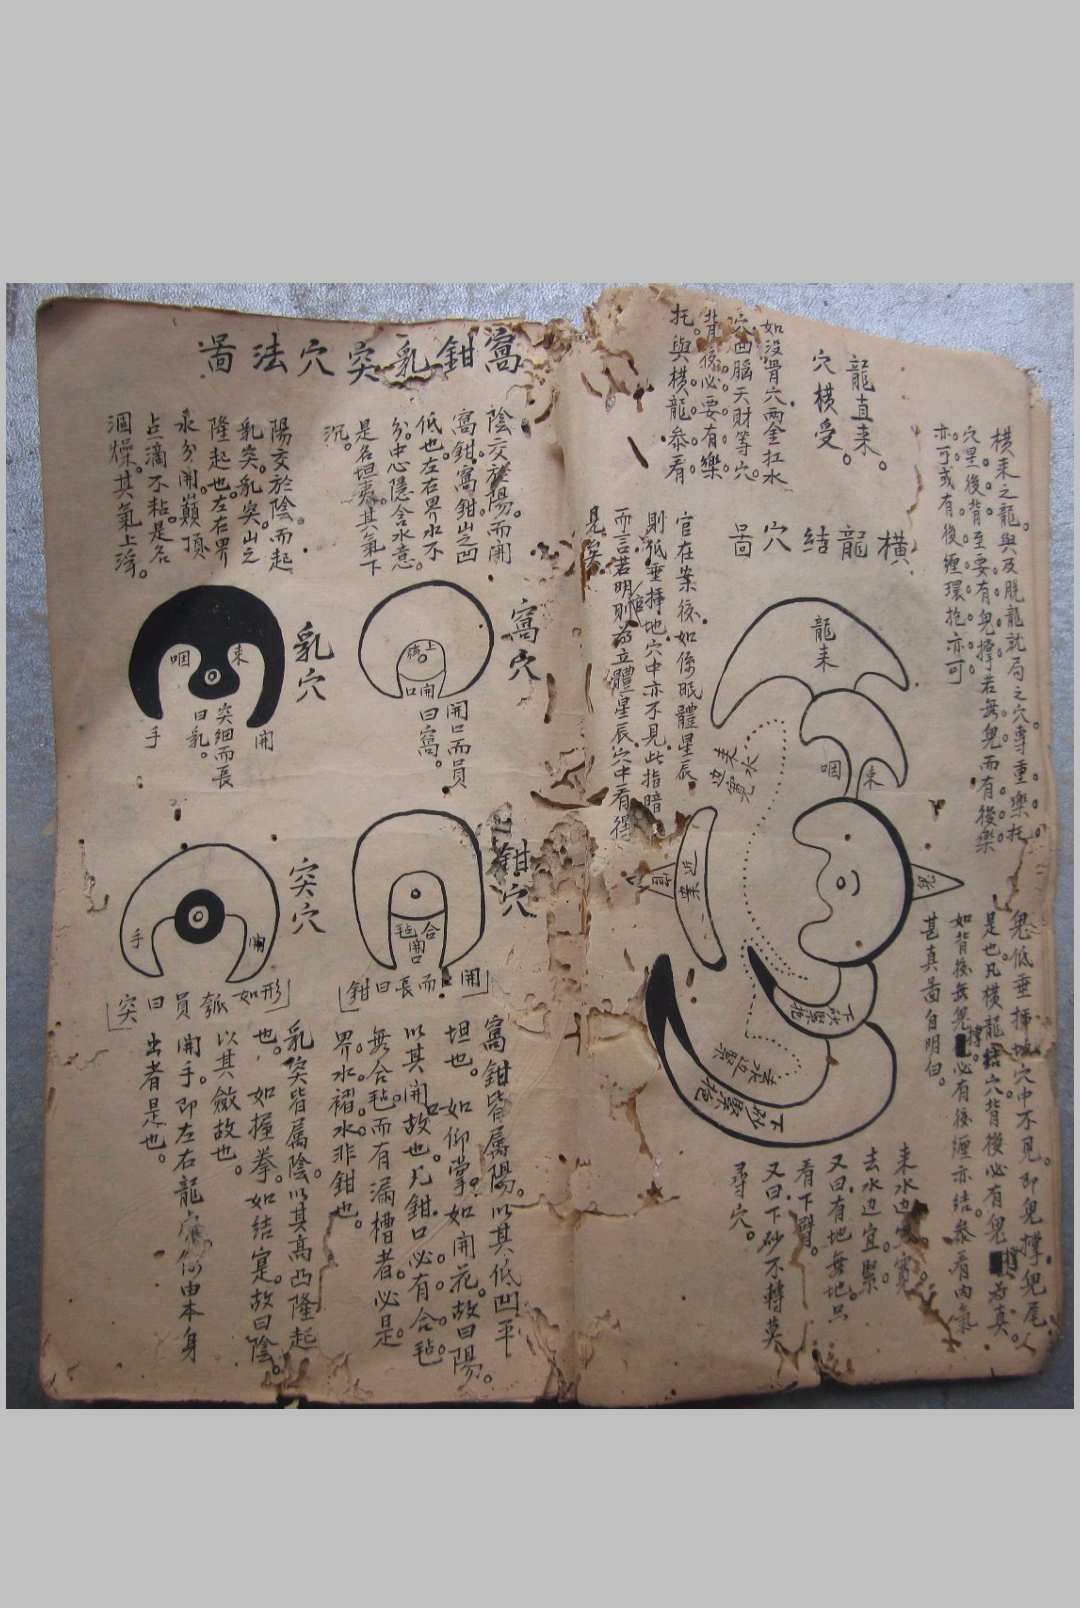 橫來之龍。與及脫龍訨局之穴。專重樂托
穴星後背。至要有鬼撑。若無鬼而有後樂
亦可。或有後纏環抱亦可。
龍直來。
穴橫受。
如没骨穴。兩金扛水
穴凹腦天財等穴。
背後必要有樂
托。與橫龍叅看
橫龍結穴啚
龍來
束
咽
鬼
來水
边寬
近案
官
下砂緊抱
去水边緊
下砂緊抱
官在案後。如係眠體星辰
則低垂揷地。穴中亦不見。此指暗官
而言。若明則為立體星辰。穴中看得
見矣。
鬼低垂揷坡穴中不見。即鬼撑。鬼尾人
是也。凡橫龍結穴。背後必有鬼撑為真。
如背後無鬼撑。必有後纏亦結。叅看内氣
甚真啚自明白。
來水边宜寬
去水边宜緊。
又曰。有地無地。只
看下臂。
又曰。下砂不轉莫
尋穴。
窩鉗乳突穴法啚
陰交於陽。而開
窩鉗。窩鉗山之凹
低也。左右界水不
分。中心隱含水意。
是名坦夷。其氣下
沉。
陽交於陰。而起
乳突。乳突。山之
隆起也。左右界
水分開。巔頂
占滴不粘。是名
涸燥。其氣上浮。
窩穴
上
開口
開口而員
曰窩。
乳穴
束
咽
突細而長
曰乳。
開
手
鉗穴
合
毡
開口
開而長曰鉗
突穴
開
手
形如瓠員曰突
窩鉗皆屬陽。以其低凹平
坦也。如仰掌。如開花。故曰陽。
以其開口故也。凡鉗口必有合毡。
無合毡。而有漏槽者。必是
界水褶水。非鉗也。
乳突皆屬陰。以其高凸隆起
也。如握拳。如結寔。故曰陰。
以其斂故也。
開手。即左右龍虎。何由本身
出者是也。